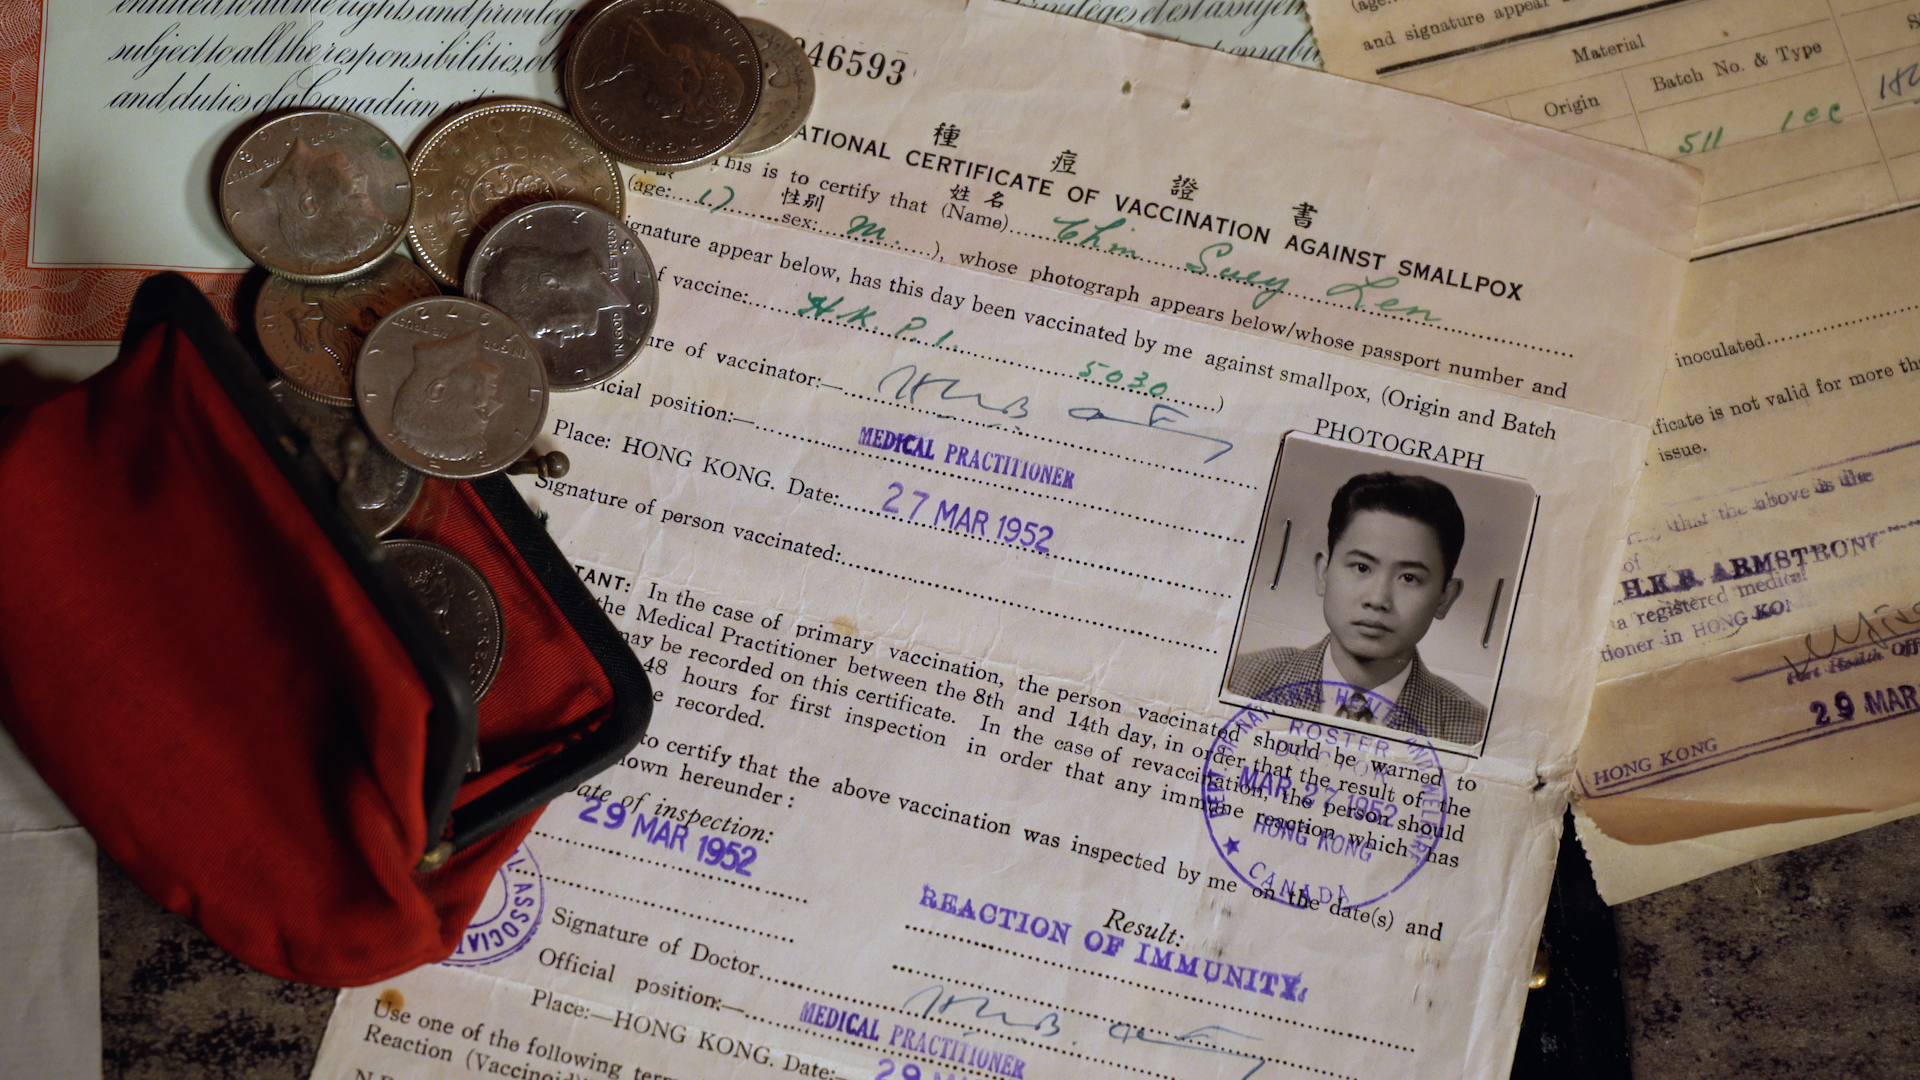 entitled to all the rights and privileges
subject to all the responsibilities, ob
and duties of a Canadian
privilèges et est assujett
46593
種痘證書
ATIONAL CERTIFICATE OF VACCINATION AGAINST SMALLPOX
姓名
This is to certify that (Name) Chin Suey Len
性別
(age: 17 sex: M. ), whose photograph appears below/whose passport number and
ignature appear below, has this day been vaccinated by me against smallpox, (Origin and Batch
of vaccine: H.K.P.I. 5030 )
ure of vaccinator:—
icial position:— MEDICAL PRACTITIONER
Place: HONG KONG. Date: 27 MAR 1952
Signature of person vaccinated:
PHOTOGRAPH
TANT: In the case of primary vaccination, the person vaccinated should be warned to
the Medical Practitioner between the 8th and 14th day, in order that the result of the
may be recorded on this certificate. In the case of revaccination, the person should
48 hours for first inspection in order that any immune reaction which has
e recorded.
NATIONAL HEALTH AND WELFARE
ROSTER
DOCTOR
MAR 27 1952
HONG KONG
★ CANADA
to certify that the above vaccination was inspected by me on the date(s) and
hown hereunder:
Date of inspection:
29 MAR 1952
Result:
REACTION OF IMMUNITY.
L ASSOCIA
Signature of Doctor
Official position:— MEDICAL PRACTITIONER
Place:—HONG KONG. Date: 29 MA
Use one of the following ter
Reaction (Vaccinoid)
(age
and signature appear
Material
Origin
Batch No. & Type
511 1cc
inoculated
ificate is not valid for more th
issue.
that the above is the
of
H.K.B. ARMSTRONG
a registered medical
tioner in HONG KO
Port Health Off
29 MAR
HONG KONG
ELIZABETH
D·G·REGINA
DOLLAR
IN GOD WE TRUST
LIBERTY
1972
1967
D·G·REG